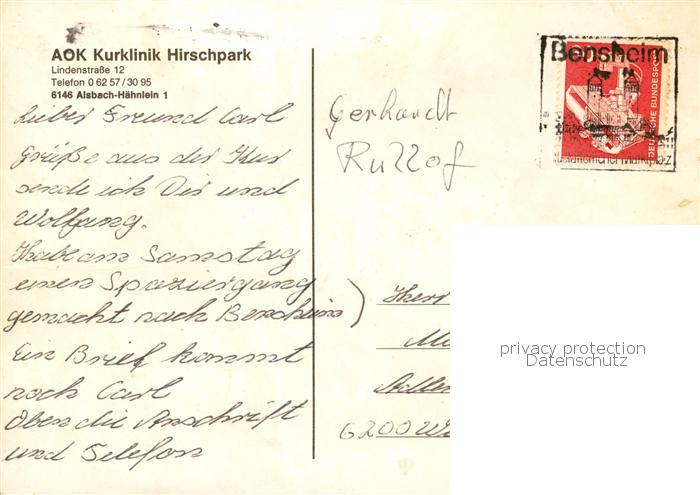 AOK Kurklinik Hirschpark
Lindenstraße 12
Telefon 0 62 57 / 30 95
6146 Alsbach-Hähnlein 1
Lieber Freund Carl
Grüße aus der Kur
sende ich Dir und
Wolfgang.
Habe am Samstag
einen Spaziergang
gemacht nach Bensheim)
Ein Brief kommt
noch Carl
Oben die Anschrift
und Telefon
Gerhardt
Rullof
Bensheim
DEUTSCHE BUNDESPOST
Herr
Adler
6200 Wi
privacy protection
Datenschutz